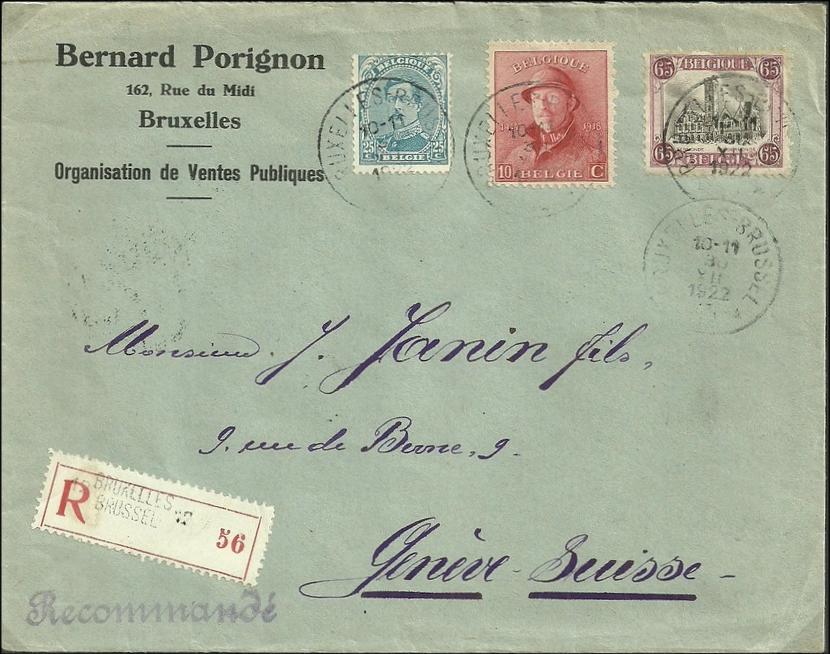 Bernard Porignon
162, Rue du Midi
Bruxelles
Organisation de Ventes Publiques
BELGIQUE
25 C 25 C
BELGIË
BELGIQUE
1918
10 BELGIË C
65 BELGIQUE 65
65 BELGIË 65
BRUXELLES-BRUSSEL
10-11
30
XII
1922
Monsieur J. Janin fils,
9. rue de Berne, 9.
Genève - Suisse -
R BRUXELLES
BRUSSEL
56
Recommandé